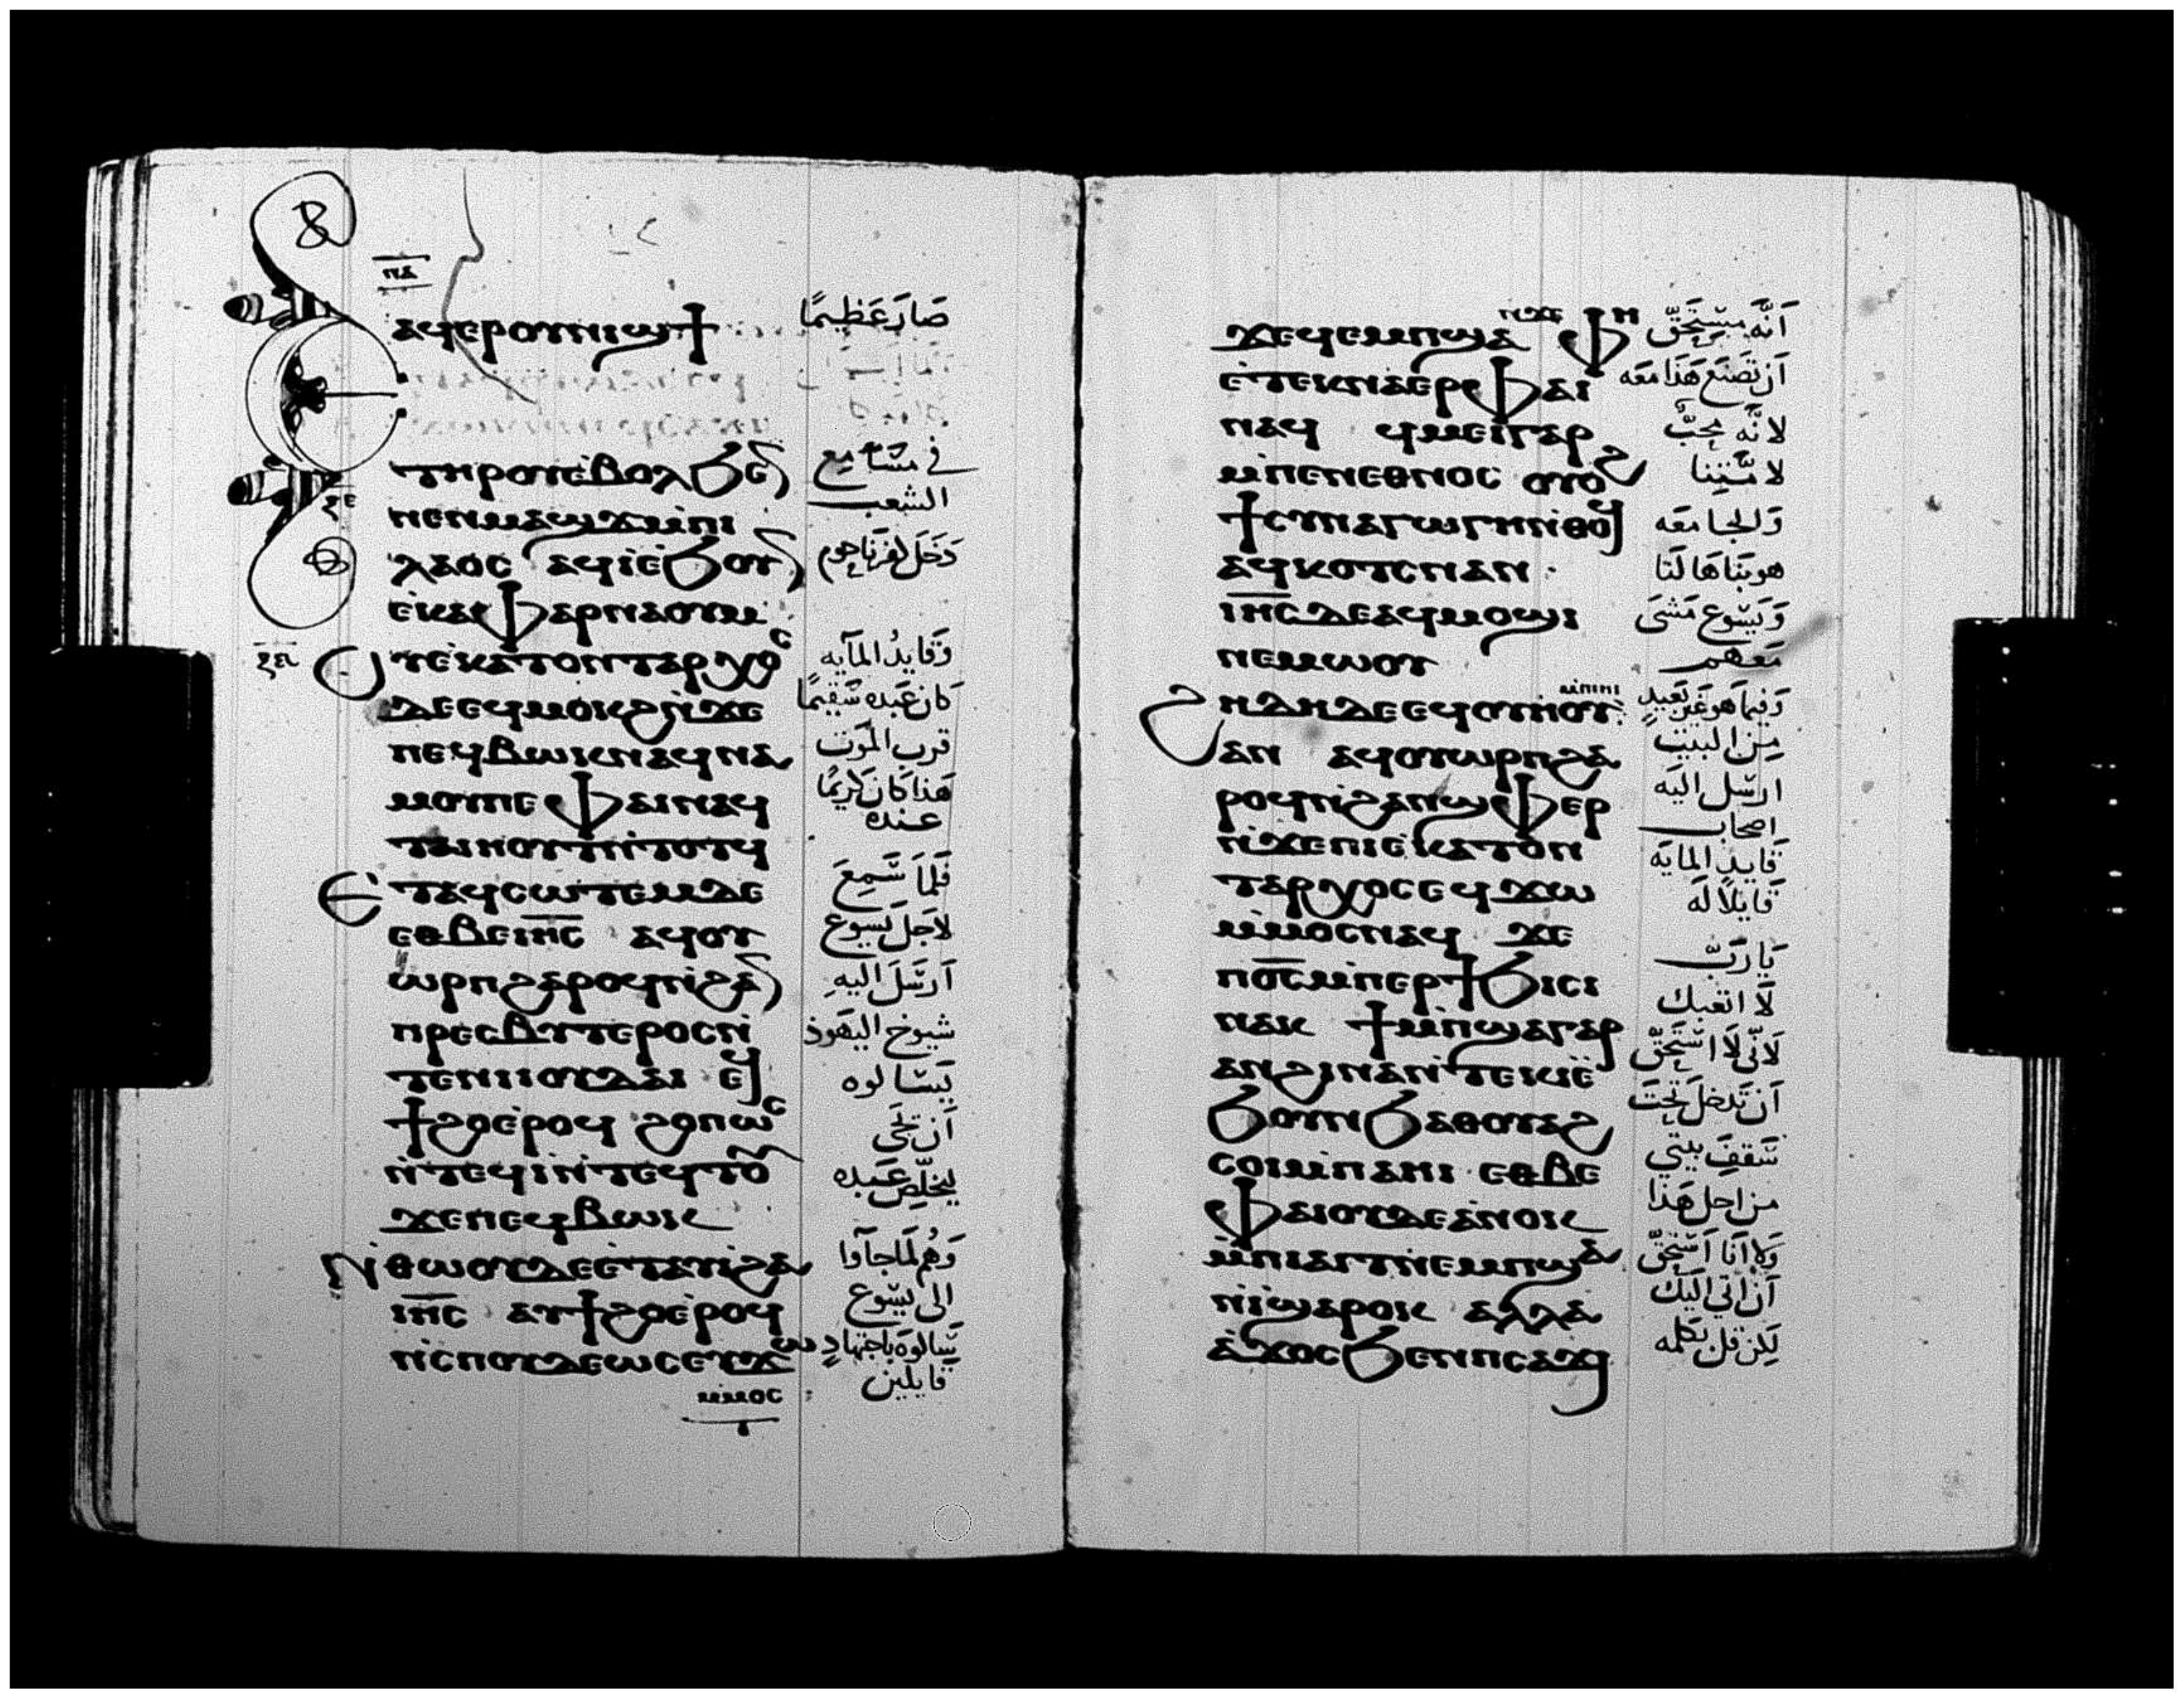 ⲡⲇ
ⲁϥⲉⲣⲟⲩⲛⲓϣϯ
صَارَ عَظِيمًا
ⲧⲏⲣⲟⲩⲉ̀ⲃⲟⲗϧⲉⲛ
في مسَامِع
ⲛⲉⲛⲙⲁϣϫⲙ̀ⲡⲓ
الشعب
ⲗⲁⲟⲥ ⲁϥⲓ̀ⲉ̀ϧⲟⲩⲛ
دَخَلَ كفرنَاحوم
ⲉ̀ⲕⲁⲫⲁⲣⲛⲁⲟⲩⲙ
ⲟⲩⲉ̀ⲕⲁⲧⲟⲛⲧⲁⲣⲭⲟⲥ
وَقَايدُ المآيه
ⲇⲉⲉϥⲙⲟⲕϩⲛ̀ϫⲉ
كان عَبده سَقيمًا
ⲡⲉϥⲃⲱⲕⲛⲁϥⲛⲁ
قرب المَوت
ⲙⲟⲩⲡⲉ ⲫⲁⲓⲛⲁϥ
هَذا كَان كَرِيمًا
عنده
ⲧⲁⲓⲏⲟⲩⲛ̀ⲧⲟⲧϥ
ⲉ̀ⲧⲁϥⲥⲱⲧⲉⲙⲇⲉ
فَلمَا سَمِعَ
ⲉⲑⲃⲉⲓⲏ̅ⲥ̅ ⲁϥⲟⲩ
لاجَل يَسوع
ⲱⲣⲡϩⲁⲣⲟϥⲛ̀ϩⲁⲛ
اَرسَلَ اليهِ
ⲡⲣⲉⲥⲃⲩⲧⲉⲣⲟⲥⲛ̀
شيوخ اليهَود
ⲧⲉⲛⲓⲓⲟⲩⲇⲁⲓ ⲉⲩ
يَسَالوه
ϯϩⲟⲉ̀ⲣⲟϥ ϩⲟⲡⲱⲥ
اَن تحَى
ⲛ̀ⲧⲉϥⲓ̀ⲛ̀ⲧⲉϥⲧⲟⲩ
ليخلّصِ عَبده
ϫⲉⲡⲉϥⲃⲱⲕ
ⲛ̀ⲑⲱⲟⲩⲇⲉⲉ̀ⲧⲁⲩⲓ̀ϩⲁ
وَهُم لَماجآوا
ⲓⲏ̅ⲥ̅ ⲁⲩϯϩⲟⲉ̀ⲣⲟϥ
الى يسَوع
ⲛ̀ⲥⲡⲟⲩⲇⲉⲱⲥⲉⲩϫⲱ
يَسَالوهَ باجتهادٍ
قايلين
ⲙ̀ⲙⲟⲥ
ϫⲉϥⲉⲙⲡϣⲁ ⲛ̀ϫⲉ ⲫⲏ
اَنَّه مسْتَحَقّ
ⲉ̀ⲧⲉⲕⲛⲁⲉⲣⲫⲁⲓ
اَن تَصنَع هَذا معَه
ⲛⲁϥ ϥⲙⲉⲓⲅⲁⲣ
لانَّه محِبُّ
ⲙ̀ⲡⲉⲛⲉⲑⲛⲟⲥ ⲟⲩⲟϩ
لامّتِنا
ϯⲥⲩⲛⲁⲅⲱⲅⲏⲛ̀ⲑⲟϥ
وَالجامعَه
ⲁϥⲕⲟⲧⲥⲛⲁⲛ
هو بَنَاهَا لَنا
ⲓⲏ̅ⲥ̅ⲇⲉⲁϥⲙⲟϣⲓ
وَيَسُوع مَشىَ
ⲛⲉⲙⲱⲟⲩ
مَعَهم
ϩⲏⲇⲏⲇⲉⲉϥⲟⲩⲏⲟⲩ ⲙ̀ⲡⲓⲏⲓ
وَفيما هو غَير بَعيدٍ
ⲁⲛ ⲁϥⲟⲩⲱⲣⲡϩⲁ
مِن البيت
ⲣⲟϥⲛ̀ϩⲁⲛϣⲫⲉⲣ
ارسَل اليَه
اصحاب
ⲛ̀ϫⲉⲡⲓⲉ̀ⲕⲁⲧⲟⲛ
قَايد المايَه
ⲧⲁⲣⲭⲟⲥⲉϥϫⲱ
قَايلاً لَه
ⲙ̀ⲙⲟⲥⲛⲁϥ ϫⲉ
ⲡⲟ̅ⲥ̅ⲙ̀ⲡⲉⲣϯϧⲓⲥⲓ
يَا رَبّ
ⲛⲁⲕ ϯⲙ̀ⲡϣⲁⲅⲁⲣ
لَا اتعَبك
ⲁⲛϩⲓⲛⲁⲛ̀ⲧⲉⲕⲓ̀ⲉ̀
لَانّى لَا اسْتَحَقّ
ϧⲟⲩⲛϧⲁⲑⲟⲩⲁϩ
اَن تَدخلَ تحتَ
ⲥⲟⲓⲙ̀ⲡⲁⲏⲓ ⲉⲑⲃⲉ
سَقفِ بيتي
ⲫⲁⲓⲟⲩⲇⲉⲁ̀ⲛⲟⲕ
من اجل هَذا
ⲙ̀ⲡⲓⲁⲓⲧⲛ̀ⲉⲙⲡϣⲁ
وَلا اَنا اَسْتَحَقّ
ⲛ̀ⲓ̀ϣⲁⲣⲟⲕ ⲁⲗⲗⲁ
اَن اتي اليَك
ⲁ̀ϫⲟⲥϧⲉⲛⲡⲥⲁϫⲓ
لكِن قل بكلمه